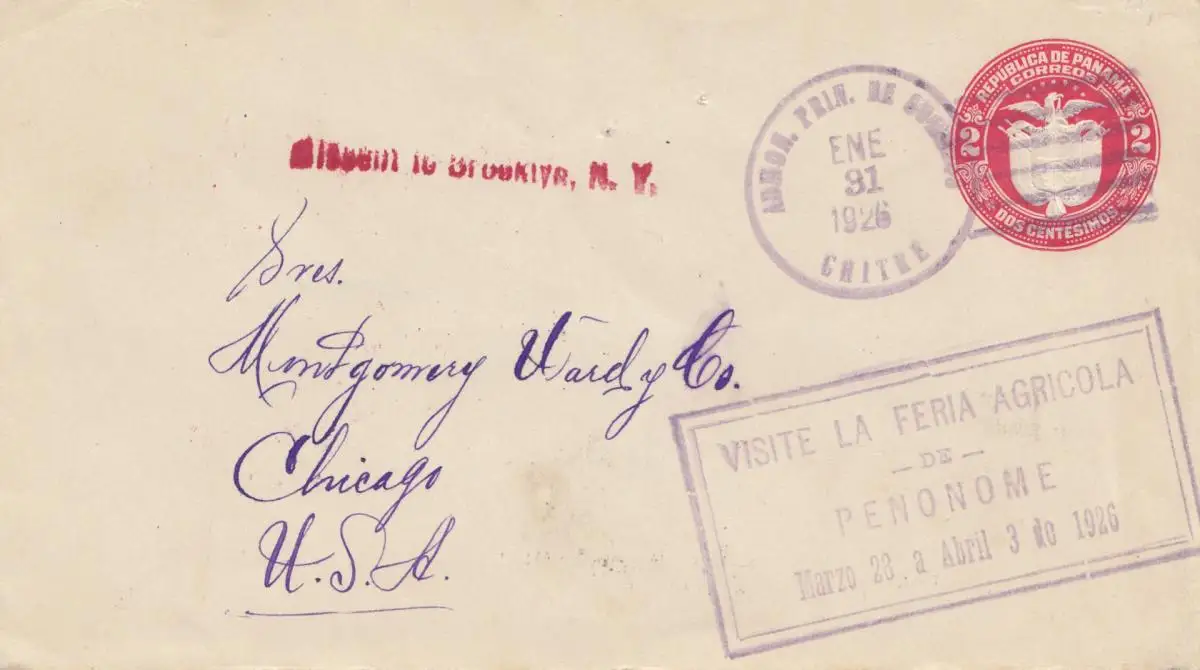 REPUBLICA DE PANAMA
CORREOS
2 2
DOS CENTESIMOS
ADMON. PRIN. DE
ENE
31
1926
CHITRE
Missent to Brooklyn, N. Y.
Sres.
Montgomery Ward y Co.
Chicago
U.S.A.
VISITE LA FERIA AGRICOLA
— DE —
PENONOME
Marzo 28 a Abril 3 de 1926